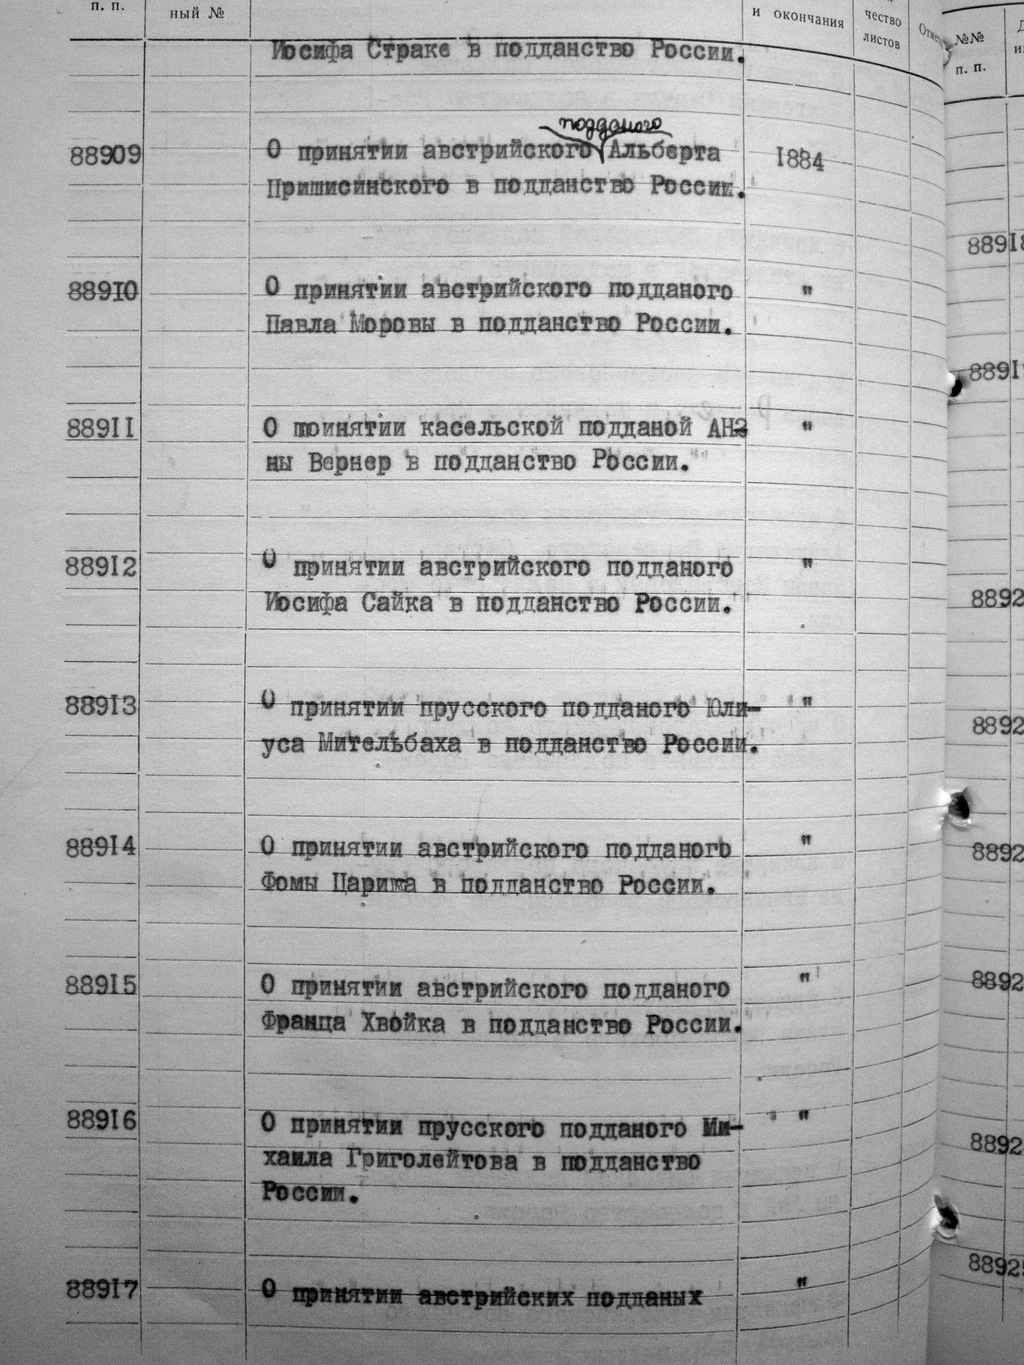 п. п. ный № и окончания чество листов
№№ п. п.
Иосифа Страке в подданство России.
подданого
88909 О принятии австрийского Альберта 1884
Пришисинского в подданство России.
88910 О принятии австрийского подданого "
Павла Моровы в подданство России.
88911 О принятии касельской подданой Ан-
ны Вернер в подданство России. "
88912 О принятии австрийского подданого "
Иосифа Сайка в подданство России.
88913 О принятии прусского подданого Юли- "
уса Мительбаха в подданство России.
88914 О принятии австрийского подданого "
Фомы Царижа в подданство России.
88915 О принятии австрийского подданого "
Франца Хвойка в подданство России.
88916 О принятии прусского подданого Ми- "
хаила Григолейтова в подданство
России.
88917 О принятии австрийских подданых "
8891
8891
8892
8892
8892
8892
8892
8892